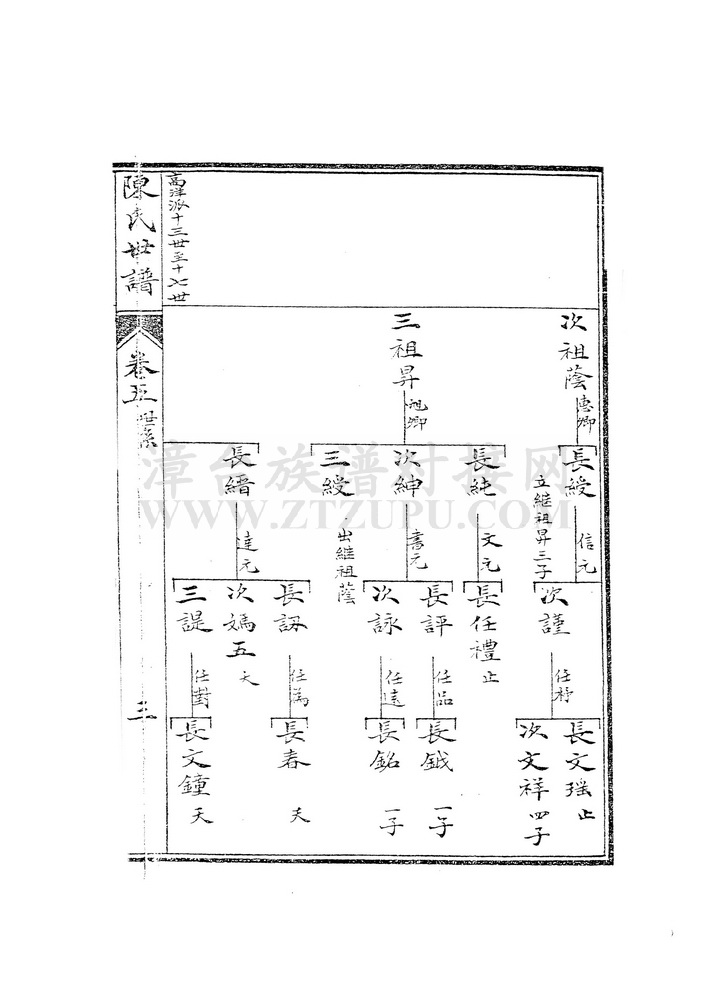 次祖蔭
德卿
長綬
立繼祖昇三子
信元
次謹
任
長文瑶止
次文祥四子
三祖昇
旭卿
長純
文元
長任禮止
次紳
書元
長評
任品
長鉞一子
次詠
任遠
長銘一子
三綬
出繼祖蔭
長縉
達元
長訒
任為
長春夭
次媽五夭
三諟
任對
長文鐘夭
高 派十三世至十七世
陳氏世譜
卷五
世系
三
漳台族谱对接网
WWW.ZTZUPU.COM